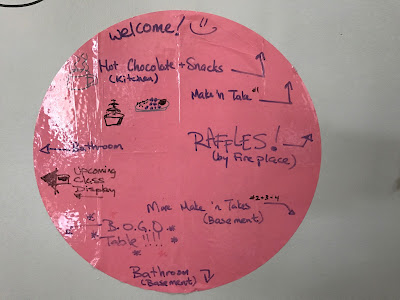 Welcome!
Hot Chocolate + Snacks
(Kitchen)
Make 'n Take #1
RAFFLES!
(by Fireplace)
Bathroom
Upcoming
Class
Display
More Make 'n Takes #2+3+4
(Basement)
B.O.G.O
Table!!!!
Bathroom
(Basement)